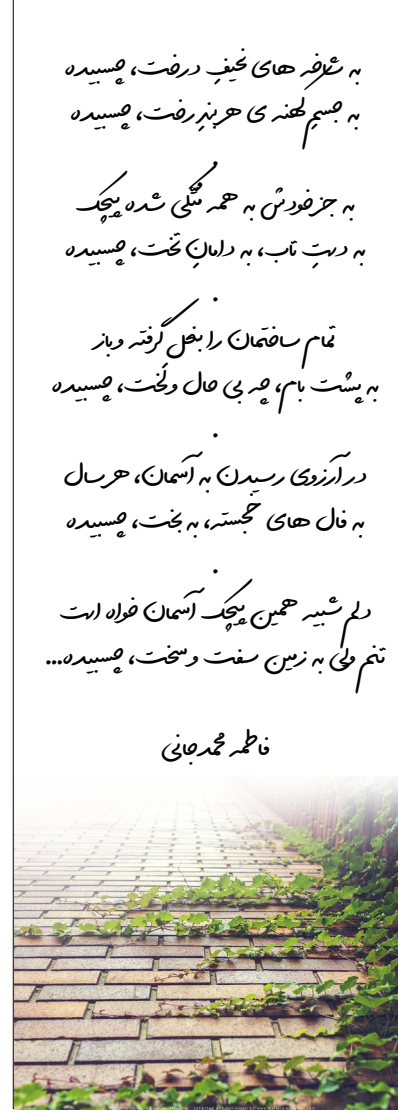 به شاخه های نحیفِ درخت، چسبیده
به جسمِ کهنه ی هر بندِ رخت، چسبیده
به جز خودش به همه متّکی شده پیچک
به دستِ تاب، به دامانِ تخت، چسبیده
.
تمام ساختمان را بغل گرفته و باز
به پشت بام، چه بی حال و لَخت، چسبیده
.
در آرزوی رسیدن به آسمان، هر سال
به فال های خجسته، به بخت، چسبیده
.
دلم شبیه همین پیچک آسمان خواه است
تنم ولی به زمین سفت و سخت، چسبیده...
فاطمه محمدجانی